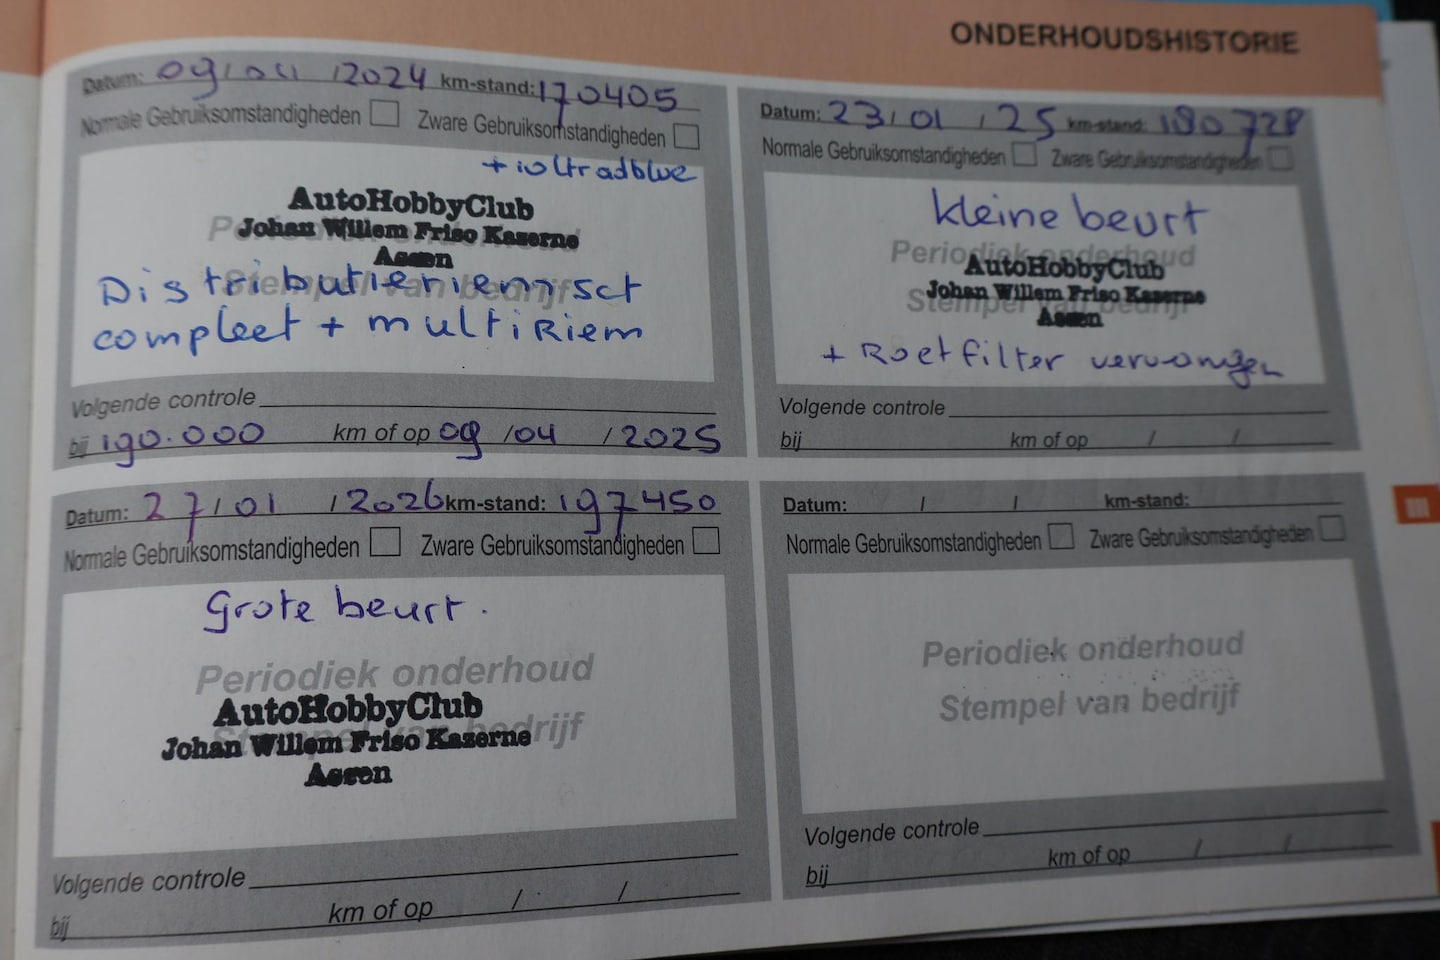 ONDERHOUDSHISTORIE
Datum: 09/04/2024 km-stand: 170405
Normale Gebruiksomstandigheden Zware Gebruiksomstandigheden
AutoHobbyClub
Johan Willem Friso Kazerne
Assen
Distributieriemset
compleet + multiRiem
Volgende controle
bij 190.000 km of op 09/04/2025
Datum: 23/01/25 km-stand: 180728
Normale Gebruiksomstandigheden Zware Gebruiksomstandigheden
kleine beurt
Periodiek onderhoud
AutoHobbyClub
Stempel van bedrijf
Johan Willem Friso Kazerne
Assen
+ Roetfilter vervangen
Volgende controle
bij km of op / /
Datum: 27/01/2026 km-stand: 197450
Normale Gebruiksomstandigheden Zware Gebruiksomstandigheden
Grote beurt.
Periodiek onderhoud
AutoHobbyClub
Stempel van bedrijf
Johan Willem Friso Kazerne
Assen
Volgende controle
bij km of op / /
Datum: / / km-stand:
Normale Gebruiksomstandigheden Zware Gebruiksomstandigheden
Periodiek onderhoud
Stempel van bedrijf
Volgende controle
bij km of op / /